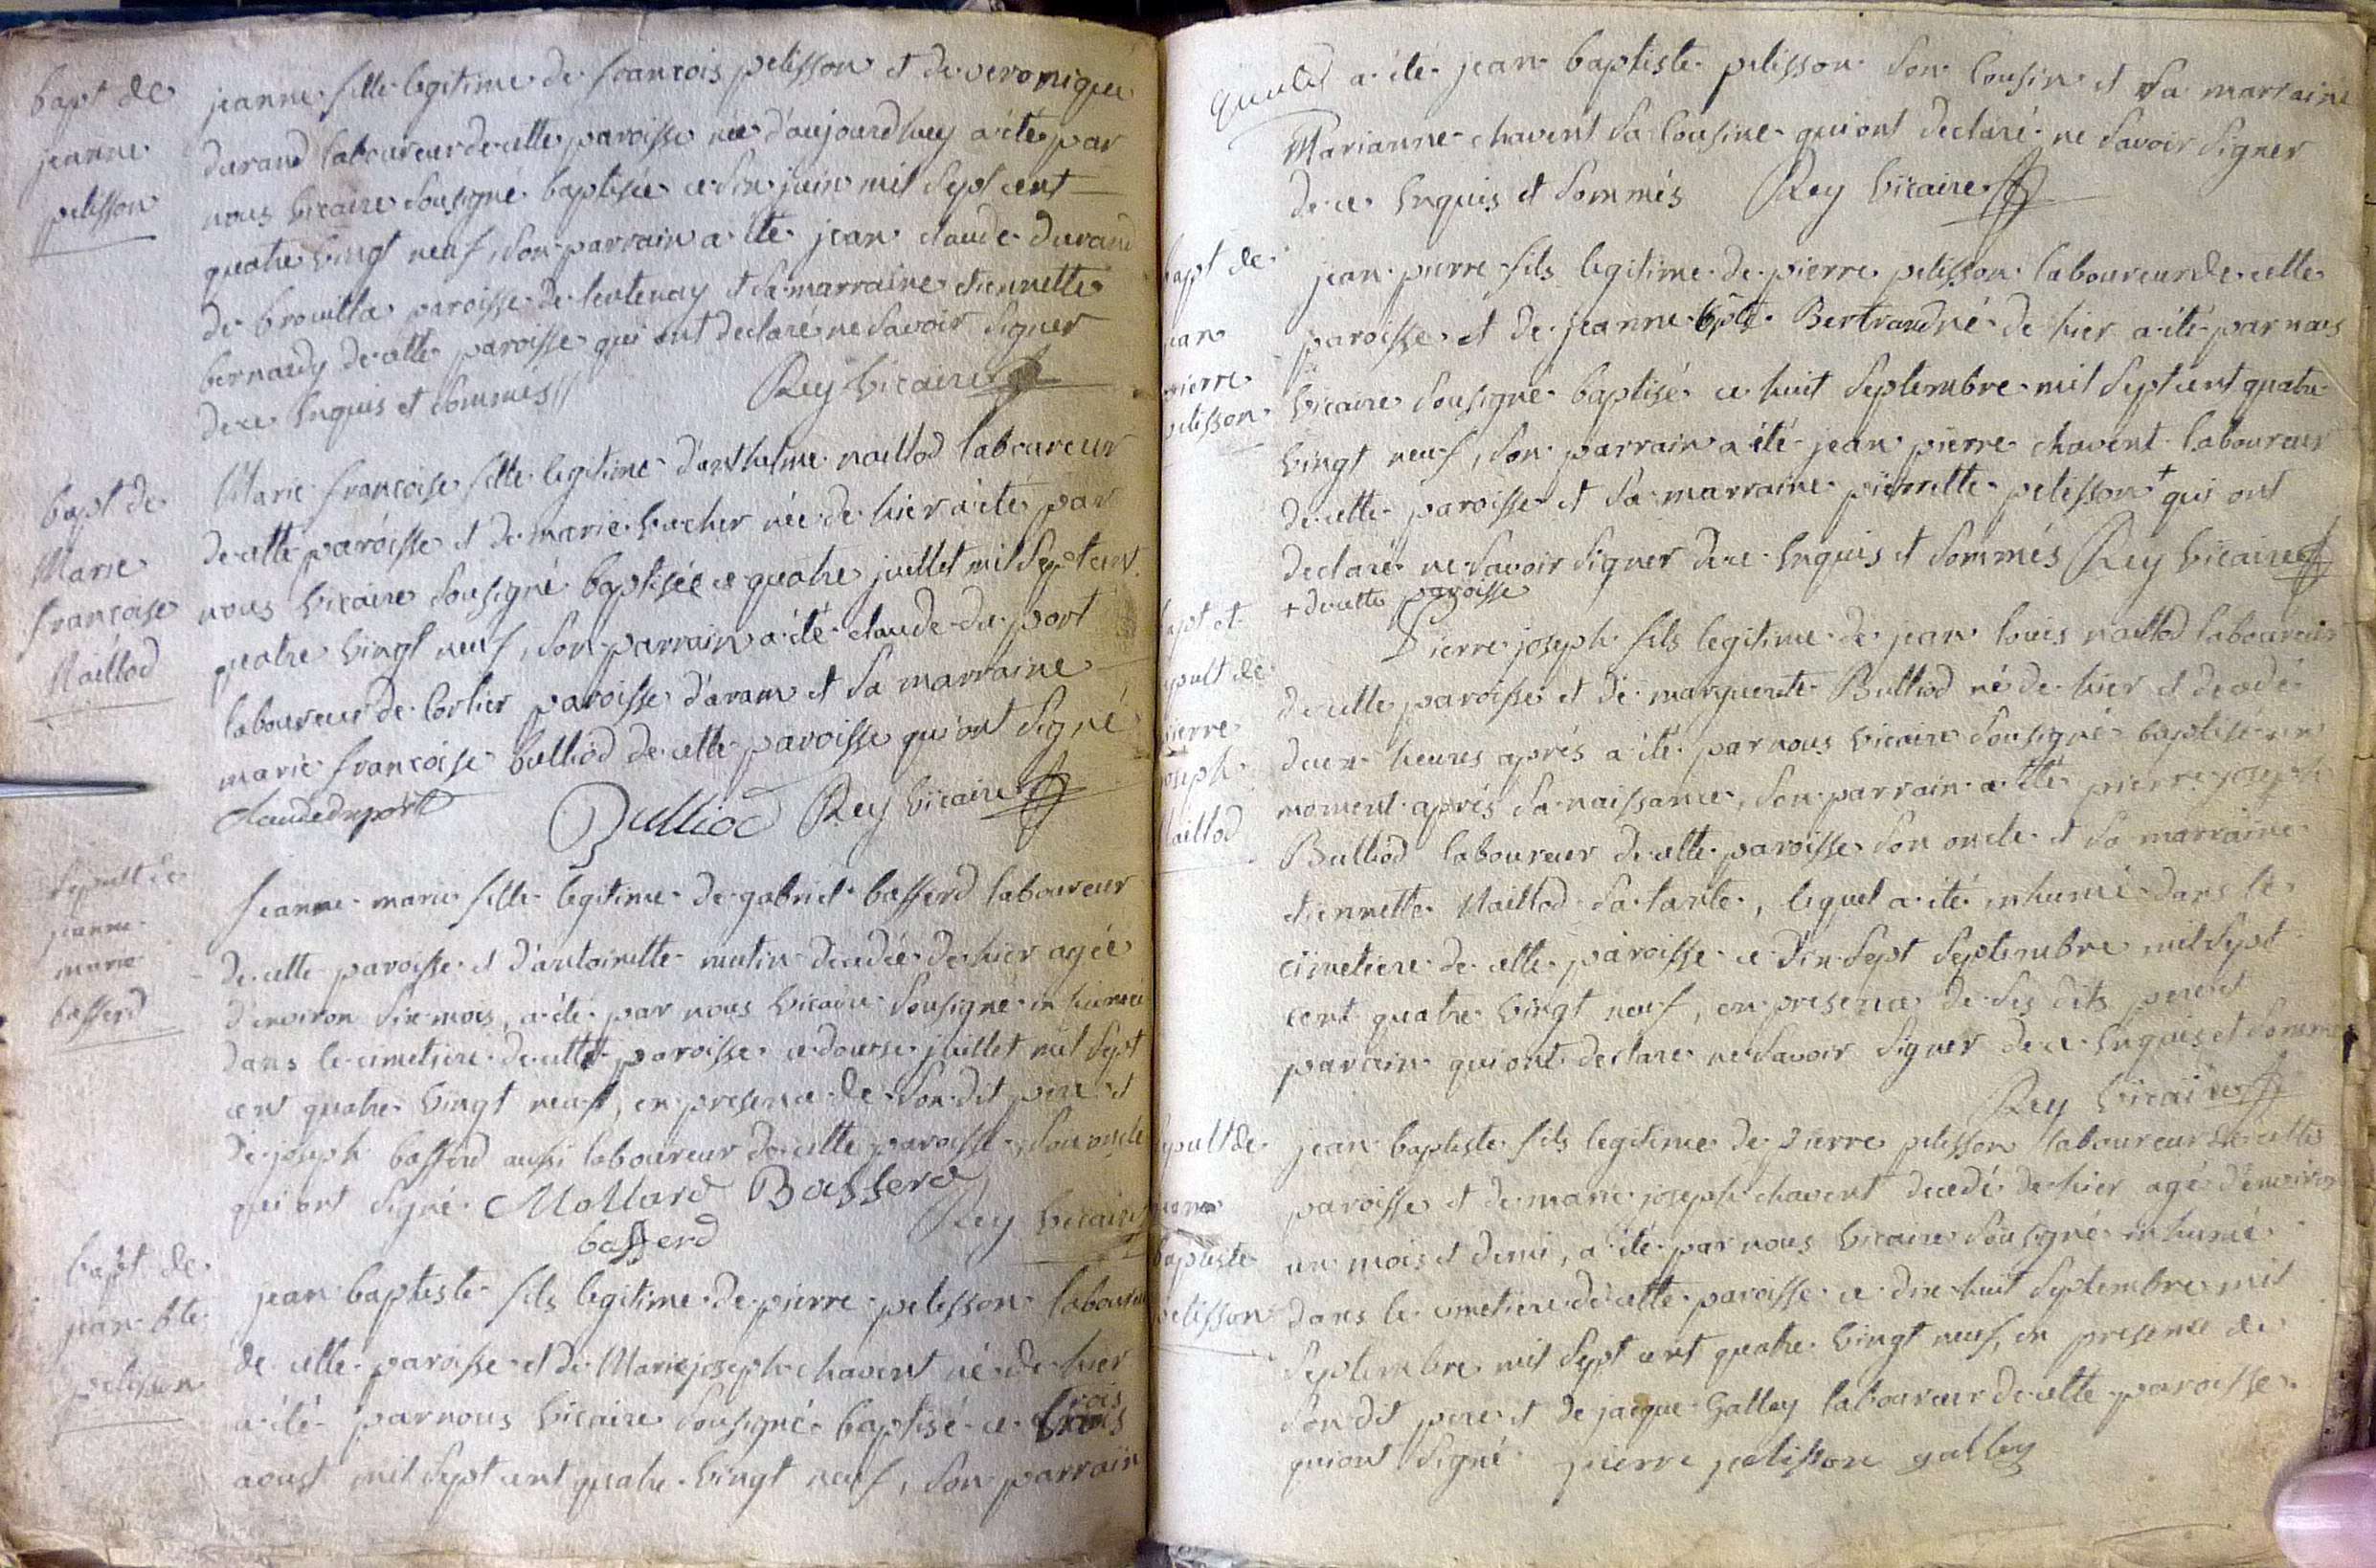 bapt de
jeanne
pelisson
jeanne fille legitime de francois pelisson et de veronique
durand laboureur de cette paroisse née d'aujourdhuy a été par
nous vicaire sousigné baptisée ce dix juin mil sept cent
quatre vingt neuf, son parrain a été jean claude durand
de brouilla paroisse de lentenay et sa marraine etiennette
bernardy de cette paroisse qui ont declaré ne savoir signer
de ce enquis et sommés // Rey vicaire
bapt de
Marie
francoise
Naillod
Marie francoise fille legitime d'anthelme naillod laboureur
de cette paroisse et de marie vacher née de hier a été par
nous vicaire sousigné baptisée ce quatre juillet mil sept cent
quatre vingt neuf, son parrain a été claude du port
laboureur de Corlier paroisse d'aram et sa marraine
marie francoise bulliod de cette paroisse qui ont signé
claude duport Bulliod Rey vicaire
sepult de
jeanne
marie
basserd
jeanne marie fille legitime de gabriel basserd laboureur
de cette paroisse et d'antoinette mutin decedée de hier agée
d'environ six mois, a été par nous vicaire sousigné inhumée
dans le cimetiere de cette paroisse ce douse juillet mil sept
cent quatre vingt neuf, en presence de son dit pere et
de joseph basserd aussi laboureur de cette paroisse, son oncle
qui ont signé. Mollard Basserd
basserd Rey vicaire
bapt de
jean bte
pelisson
jean baptiste fils legitime de pierre pelisson laboureur
de cette paroisse et de Marie joseph chavent né de hier
a été par nous vicaire sousigné baptisé ce trois
aoust mil sept cent quatre vingt neuf, son parrain
a été jean baptiste pelisson son Cousin et sa marraine
Marianne chavent sa Cousine qui ont declaré ne savoir signer
de ce enquis et sommés Rey vicaire
bapt de
jean
pierre
pelisson
jean pierre fils legitime de pierre pelisson laboureur de cette
paroisse et de jeanne bpte Bertrand né de hier a été par nous
vicaire sousigné baptisé ce huit septembre mil sept cent quatre
vingt neuf, son parrain a été jean pierre chavent laboureur
de cette paroisse et sa marraine pierrette pelisson + qui ont
declaré ne savoir signer de ce enquis et sommés Rey vicaire
+ de cette paroisse
bapt et
sepult de
pierre
joseph
naillod
Pierre joseph fils legitime de jean louis naillod laboureur
de cette paroisse et de marguerite Bulliod né de hier et decedé
deux heures aprés a été par nous vicaire sousigné baptisé un
moment aprés sa naissance, son parrain a été pierre joseph
Bulliod laboureur de cette paroisse son oncle et sa marraine
etiennette Naillod sa tante, lequel a été inhumé dans le
cimetiere de cette paroisse ce dix sept septembre mil sept
cent quatre vingt neuf, en presence de ses dits pere et
parain qui ont declaré ne savoir signer de ce enquis et sommés
Rey vicaire
sepult de
jean
baptiste
pelisson
jean baptiste fils legitime de pierre pelisson laboureur de cette
paroisse et de marie joseph chavent decedé de hier agé d'environ
un mois et demi, a été par nous vicaire sousigné inhumé
dans le cimetiere de cette paroisse ce dix huit septembre mil
septembre mil sept cent quatre vingt neuf, en presence de
son dit pere et de jacque Galley laboureur de cette paroisse
qui ont signé pierre pelisson galley